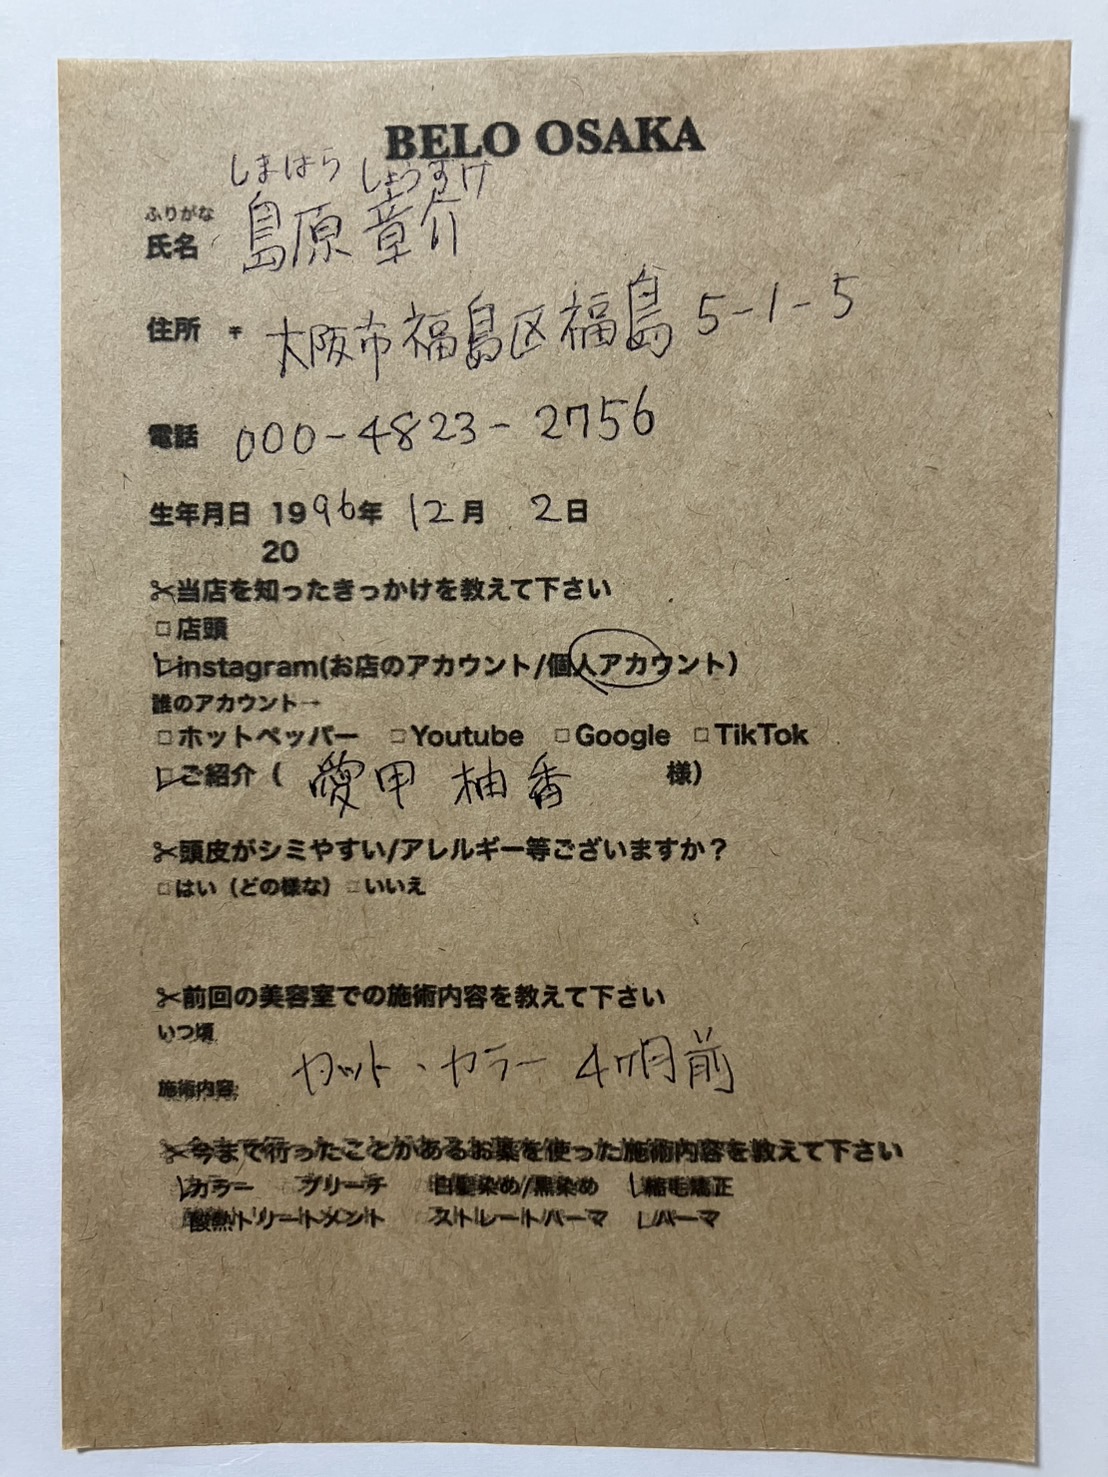 BELO OSAKA
しまはら しょうすけ
ふりがな
氏名 島原 章介
住所 〒 大阪市福島区福島 5-1-5
電話 000-4823-2756
生年月日 1996年 12月 2日
20
✂当店を知ったきっかけを教えて下さい
□店頭
☑instagram(お店のアカウント/個人アカウント)
誰のアカウント→
□ホットペッパー □Youtube □Google □TikTok
☑ご紹介( 愛甲 柚香 様)
✂頭皮がシミやすい/アレルギー等ございますか?
□はい(どの様な) □いいえ
✂前回の美容室での施術内容を教えて下さい
いつ頃
カット、カラー 4ヶ月前
施術内容
✂今まで行ったことがあるお薬を使った施術内容を教えて下さい
✓カラー ブリーチ 白髪染め/黒染め ✓縮毛矯正
酸熱トリートメント ストレートパーマ ✓パーマ